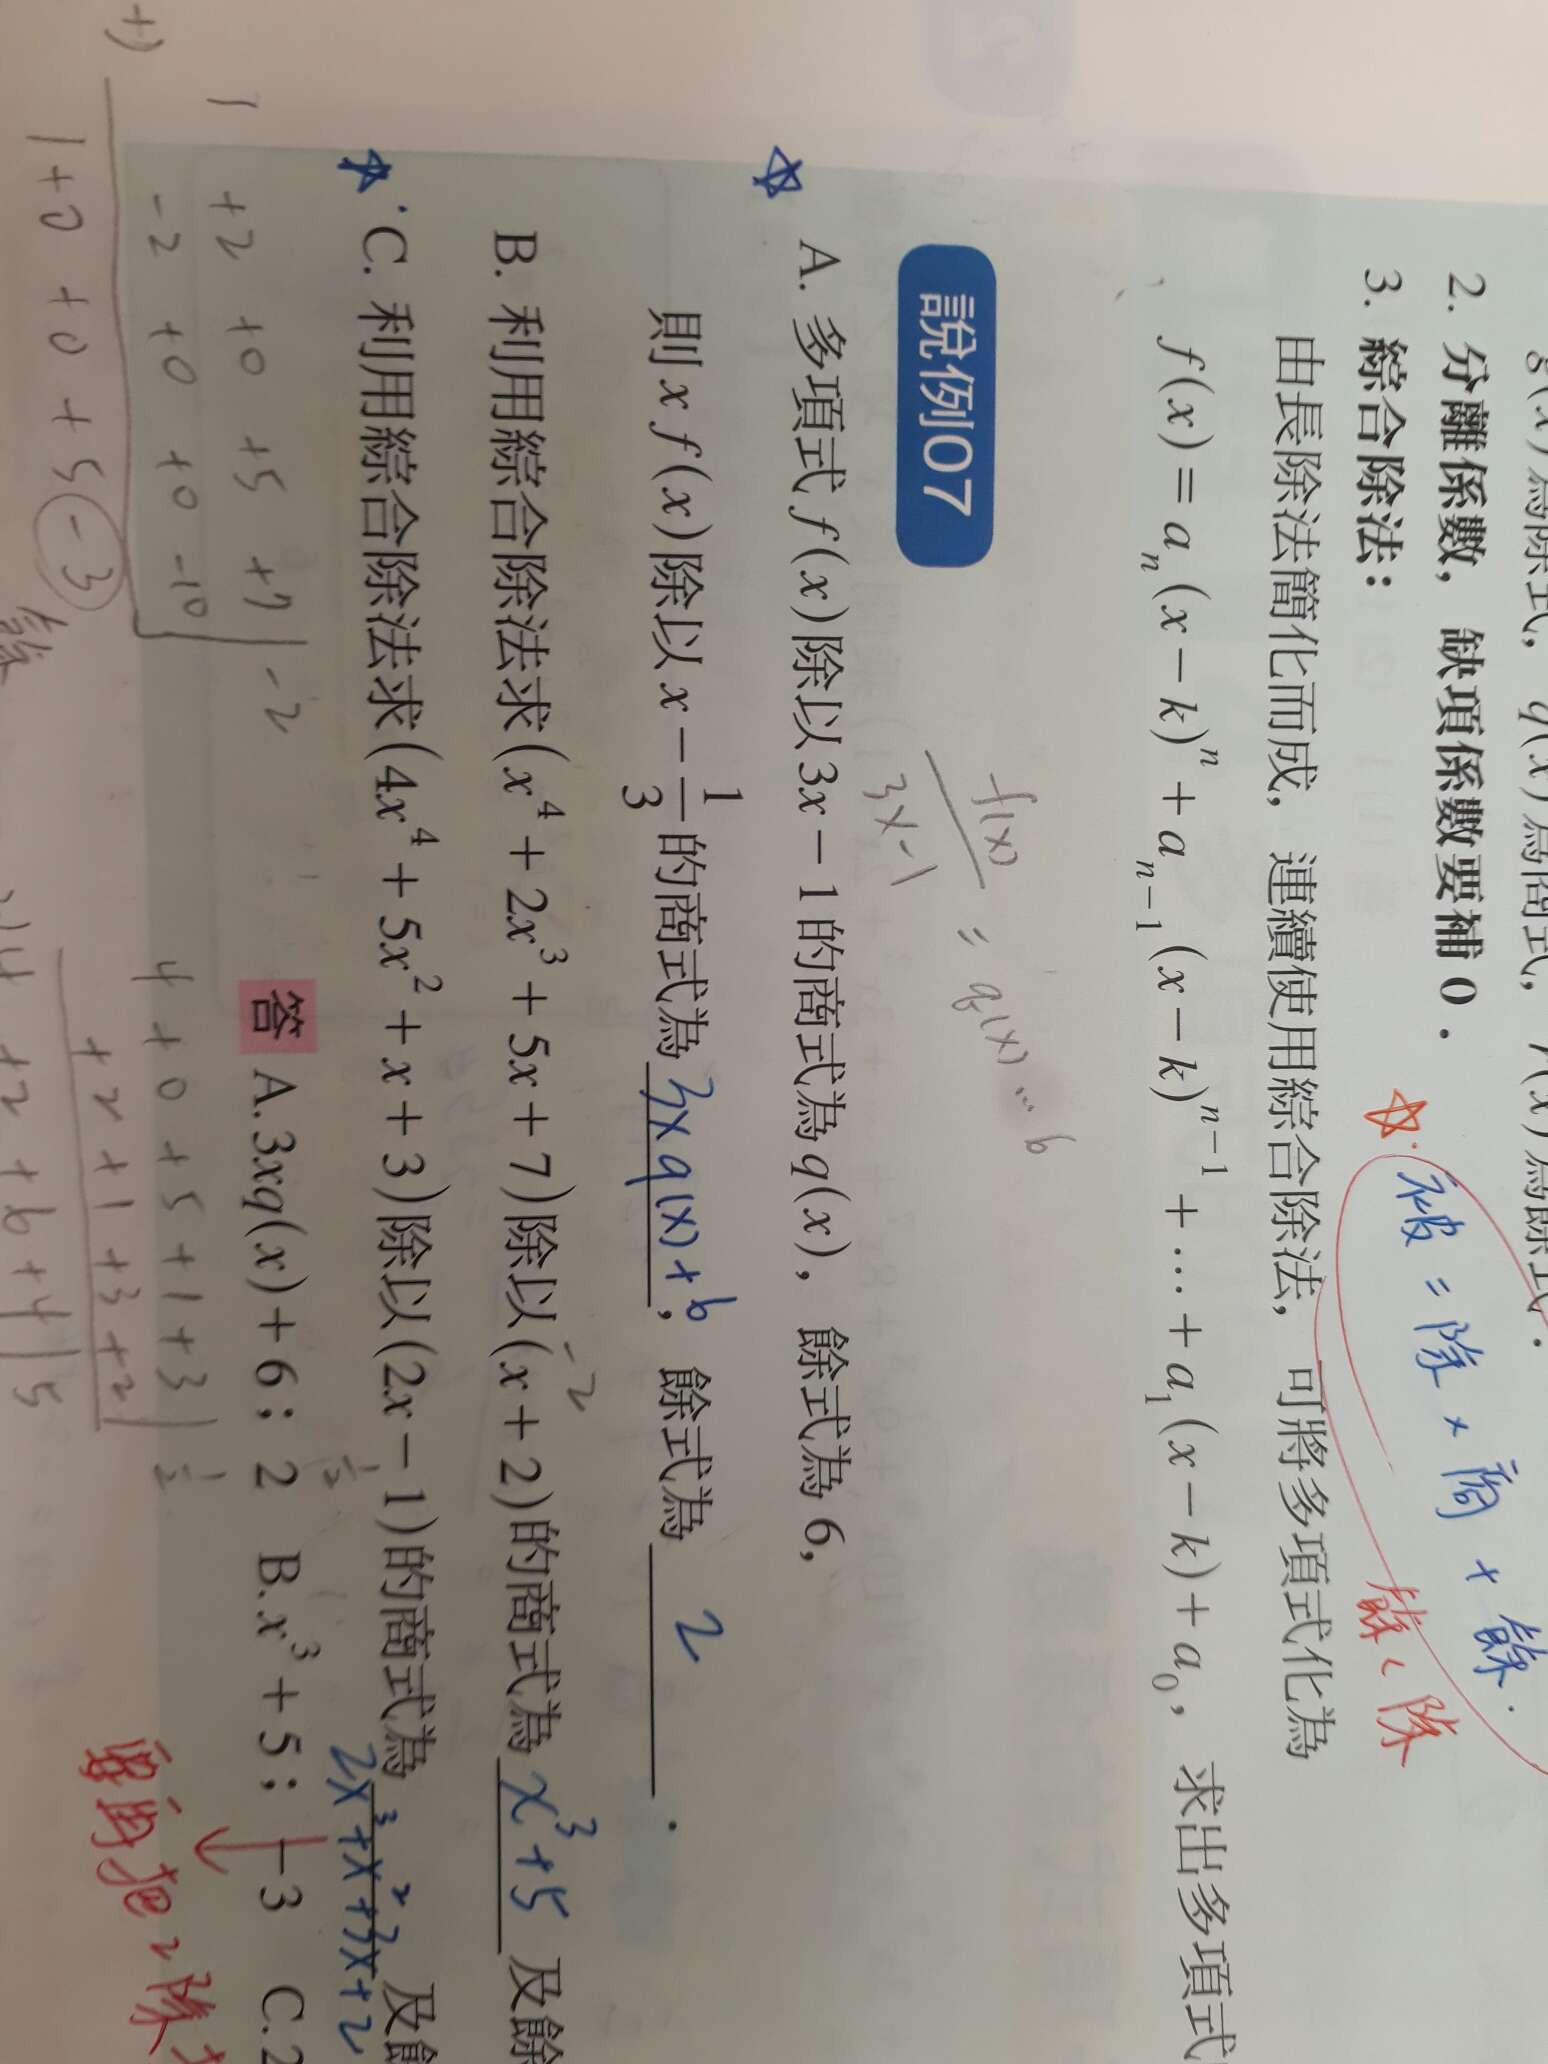 g(x)為除式，q(x)為商式，r(x)為餘式．
2. 分離係數，缺項係數要補0．
☆. 被 = 除 × 商 + 餘.
3. 綜合除法：
餘 < 除
由長除法簡化而成，連續使用綜合除法，可將多項式化為
f(x)=aₙ(x−k)ⁿ+aₙ₋₁(x−k)ⁿ⁻¹+…+a₁(x−k)+a₀，求出多項式
f(x)/(3x-1) = q(x) … 6
說例07
☆ A. 多項式f(x)除以3x−1的商式為q(x)，餘式為6，
則xf(x)除以x−1/3的商式為 3xq(x)+6，餘式為 2 ．
-2
B. 利用綜合除法求(x⁴+2x³+5x+7)除以(x+2)的商式為 x³+5 及餘
☆ C. 利用綜合除法求(4x⁴+5x²+x+3)除以(2x−1)的商式為 2x³+x²+3x+2 及餘
1/2
答 A.3xq(x)+6；2 B.x³+5；−3 C.2
1 +2 +0 +5 +7 | -2
-2 +0 +0 -10
+)
1 +0 +0 +5 -3
餘
4 +0 +5 +1 +3 | 1/2
+2 +1 +3 +2
4 +2 +6 +4 | 5
除